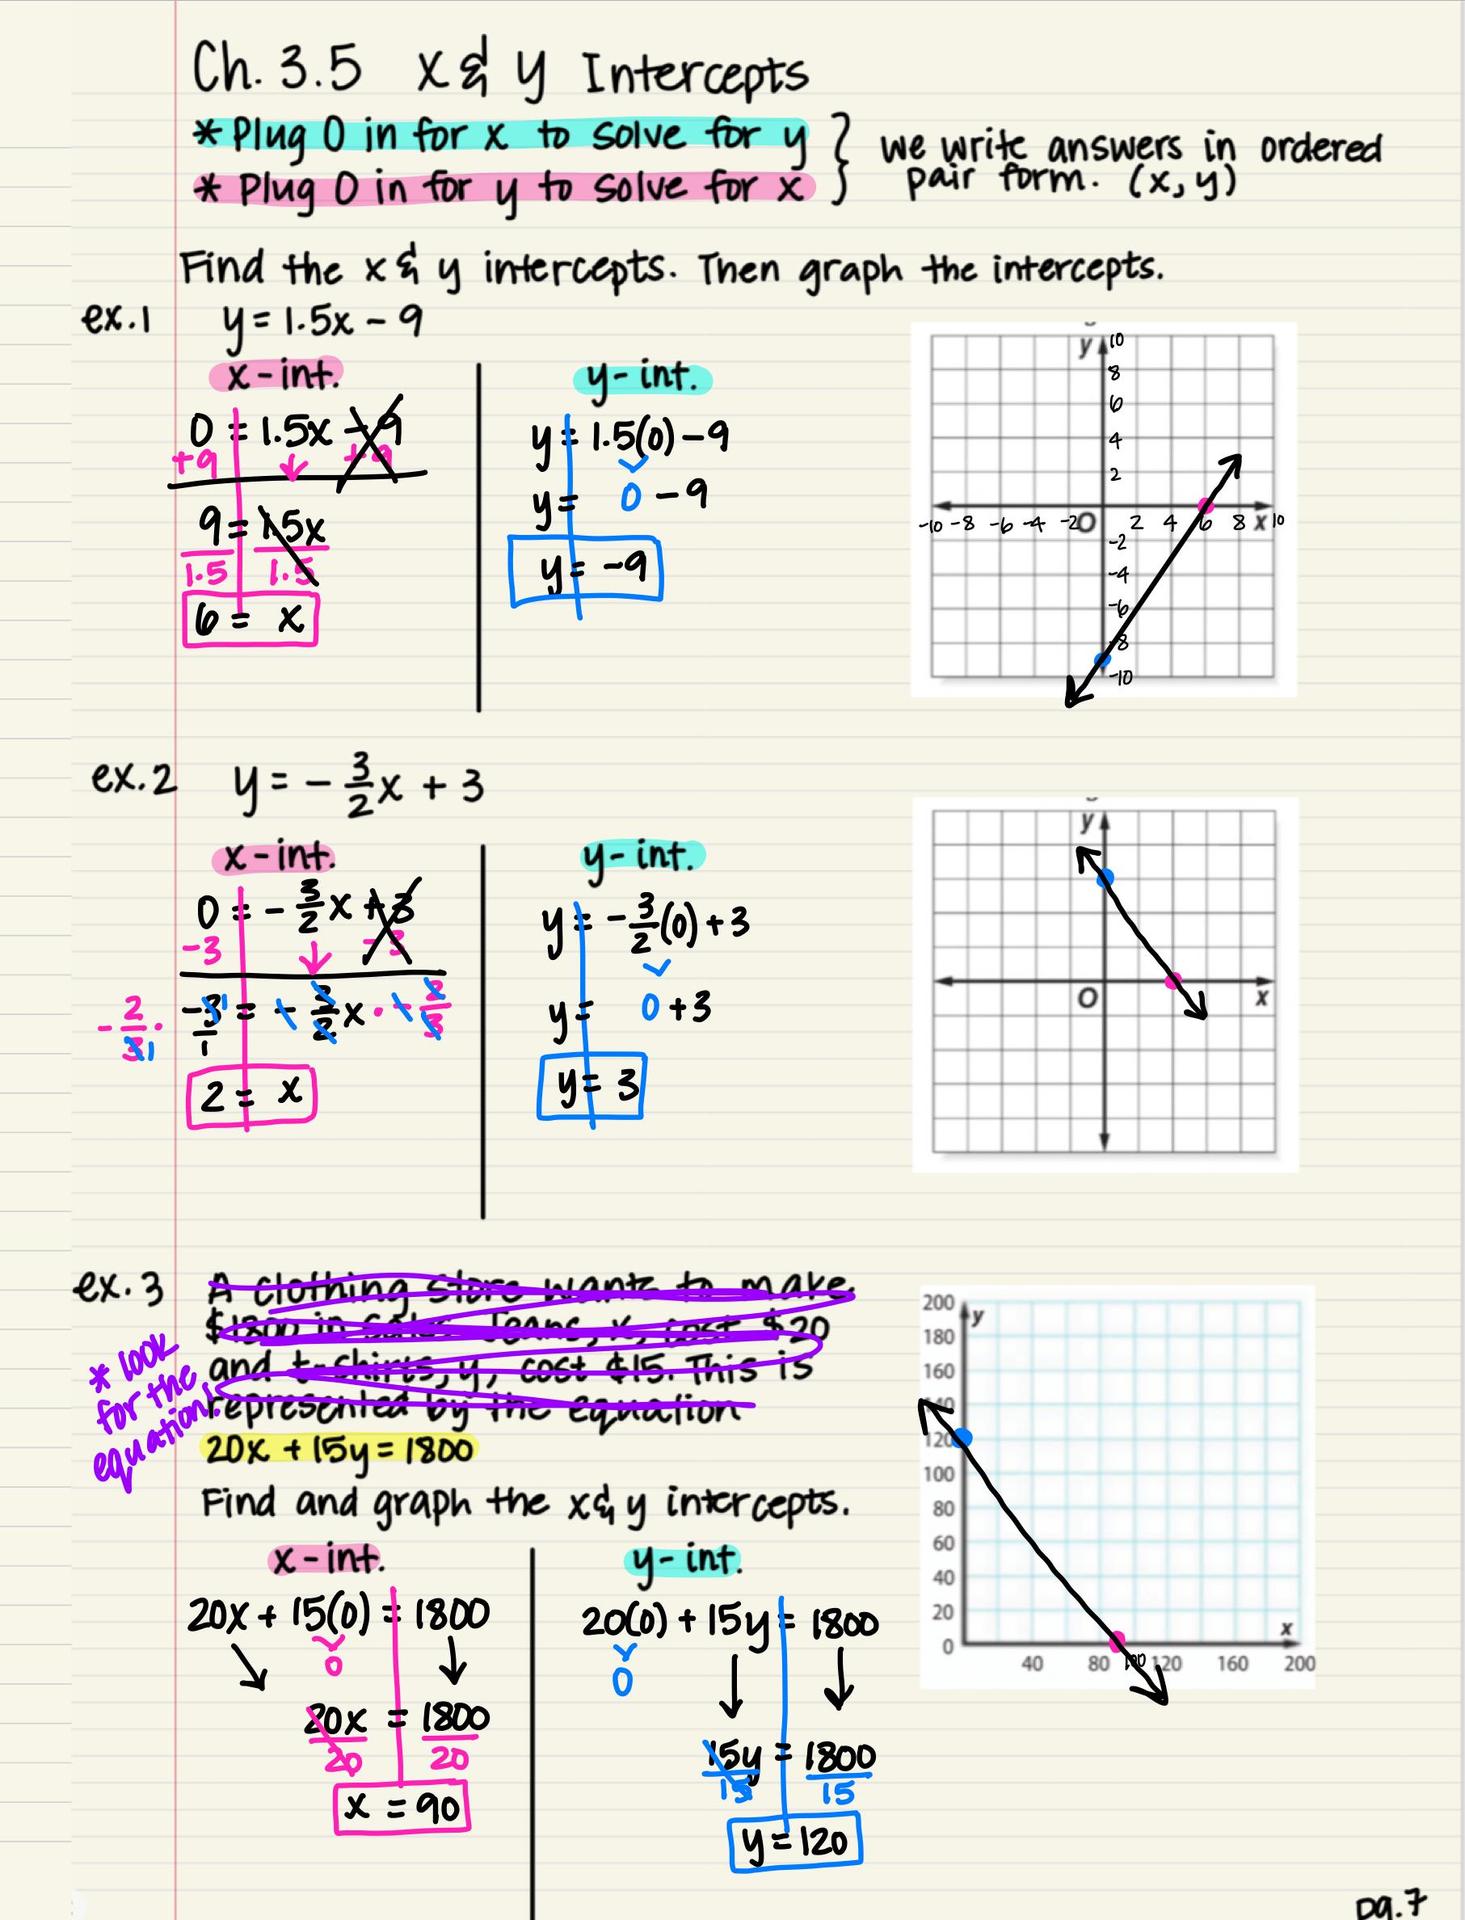 Ch. 3.5 x & y Intercepts
* Plug 0 in for x to solve for y
* Plug 0 in for y to solve for x
} we write answers in ordered
pair form. (x, y)
Find the x & y intercepts. Then graph the intercepts.
ex.1 y = 1.5x - 9
x-int.
0 = 1.5x - 9
+9 +9
9 = 1.5x
1.5 1.5
6 = x
y-int.
y = 1.5(0) - 9
y = 0 - 9
y = -9
y
10
8
6
4
2
-10 -8 -6 -4 -2 O 2 4 6 8 x 10
-2
-4
-6
-8
-10
ex.2 y = - 3/2 x + 3
x-int.
0 = - 3/2 x + 3
-3 -3
- 2/3 · -3/1 = - 3/2 x · - 2/3
1 1
2 = x
y-int.
y = -3/2 (0) + 3
y = 0 + 3
y = 3
y
O x
ex.3 A clothing store wants to make
$1800 in sales. Jeans, x, cost $20
and t-shirts, y, cost $15. This is
represented by the equation
20x + 15y = 1800
* look
for the
equation!
Find and graph the x & y intercepts.
x-int.
20x + 15(0) = 1800
0
20x = 1800
20 20
x = 90
y-int.
20(0) + 15y = 1800
0
15y = 1800
15 15
y = 120
200 y
180
160
140
120
100
80
60
40
20
0 x
40 80 100 120 160 200
pg.7